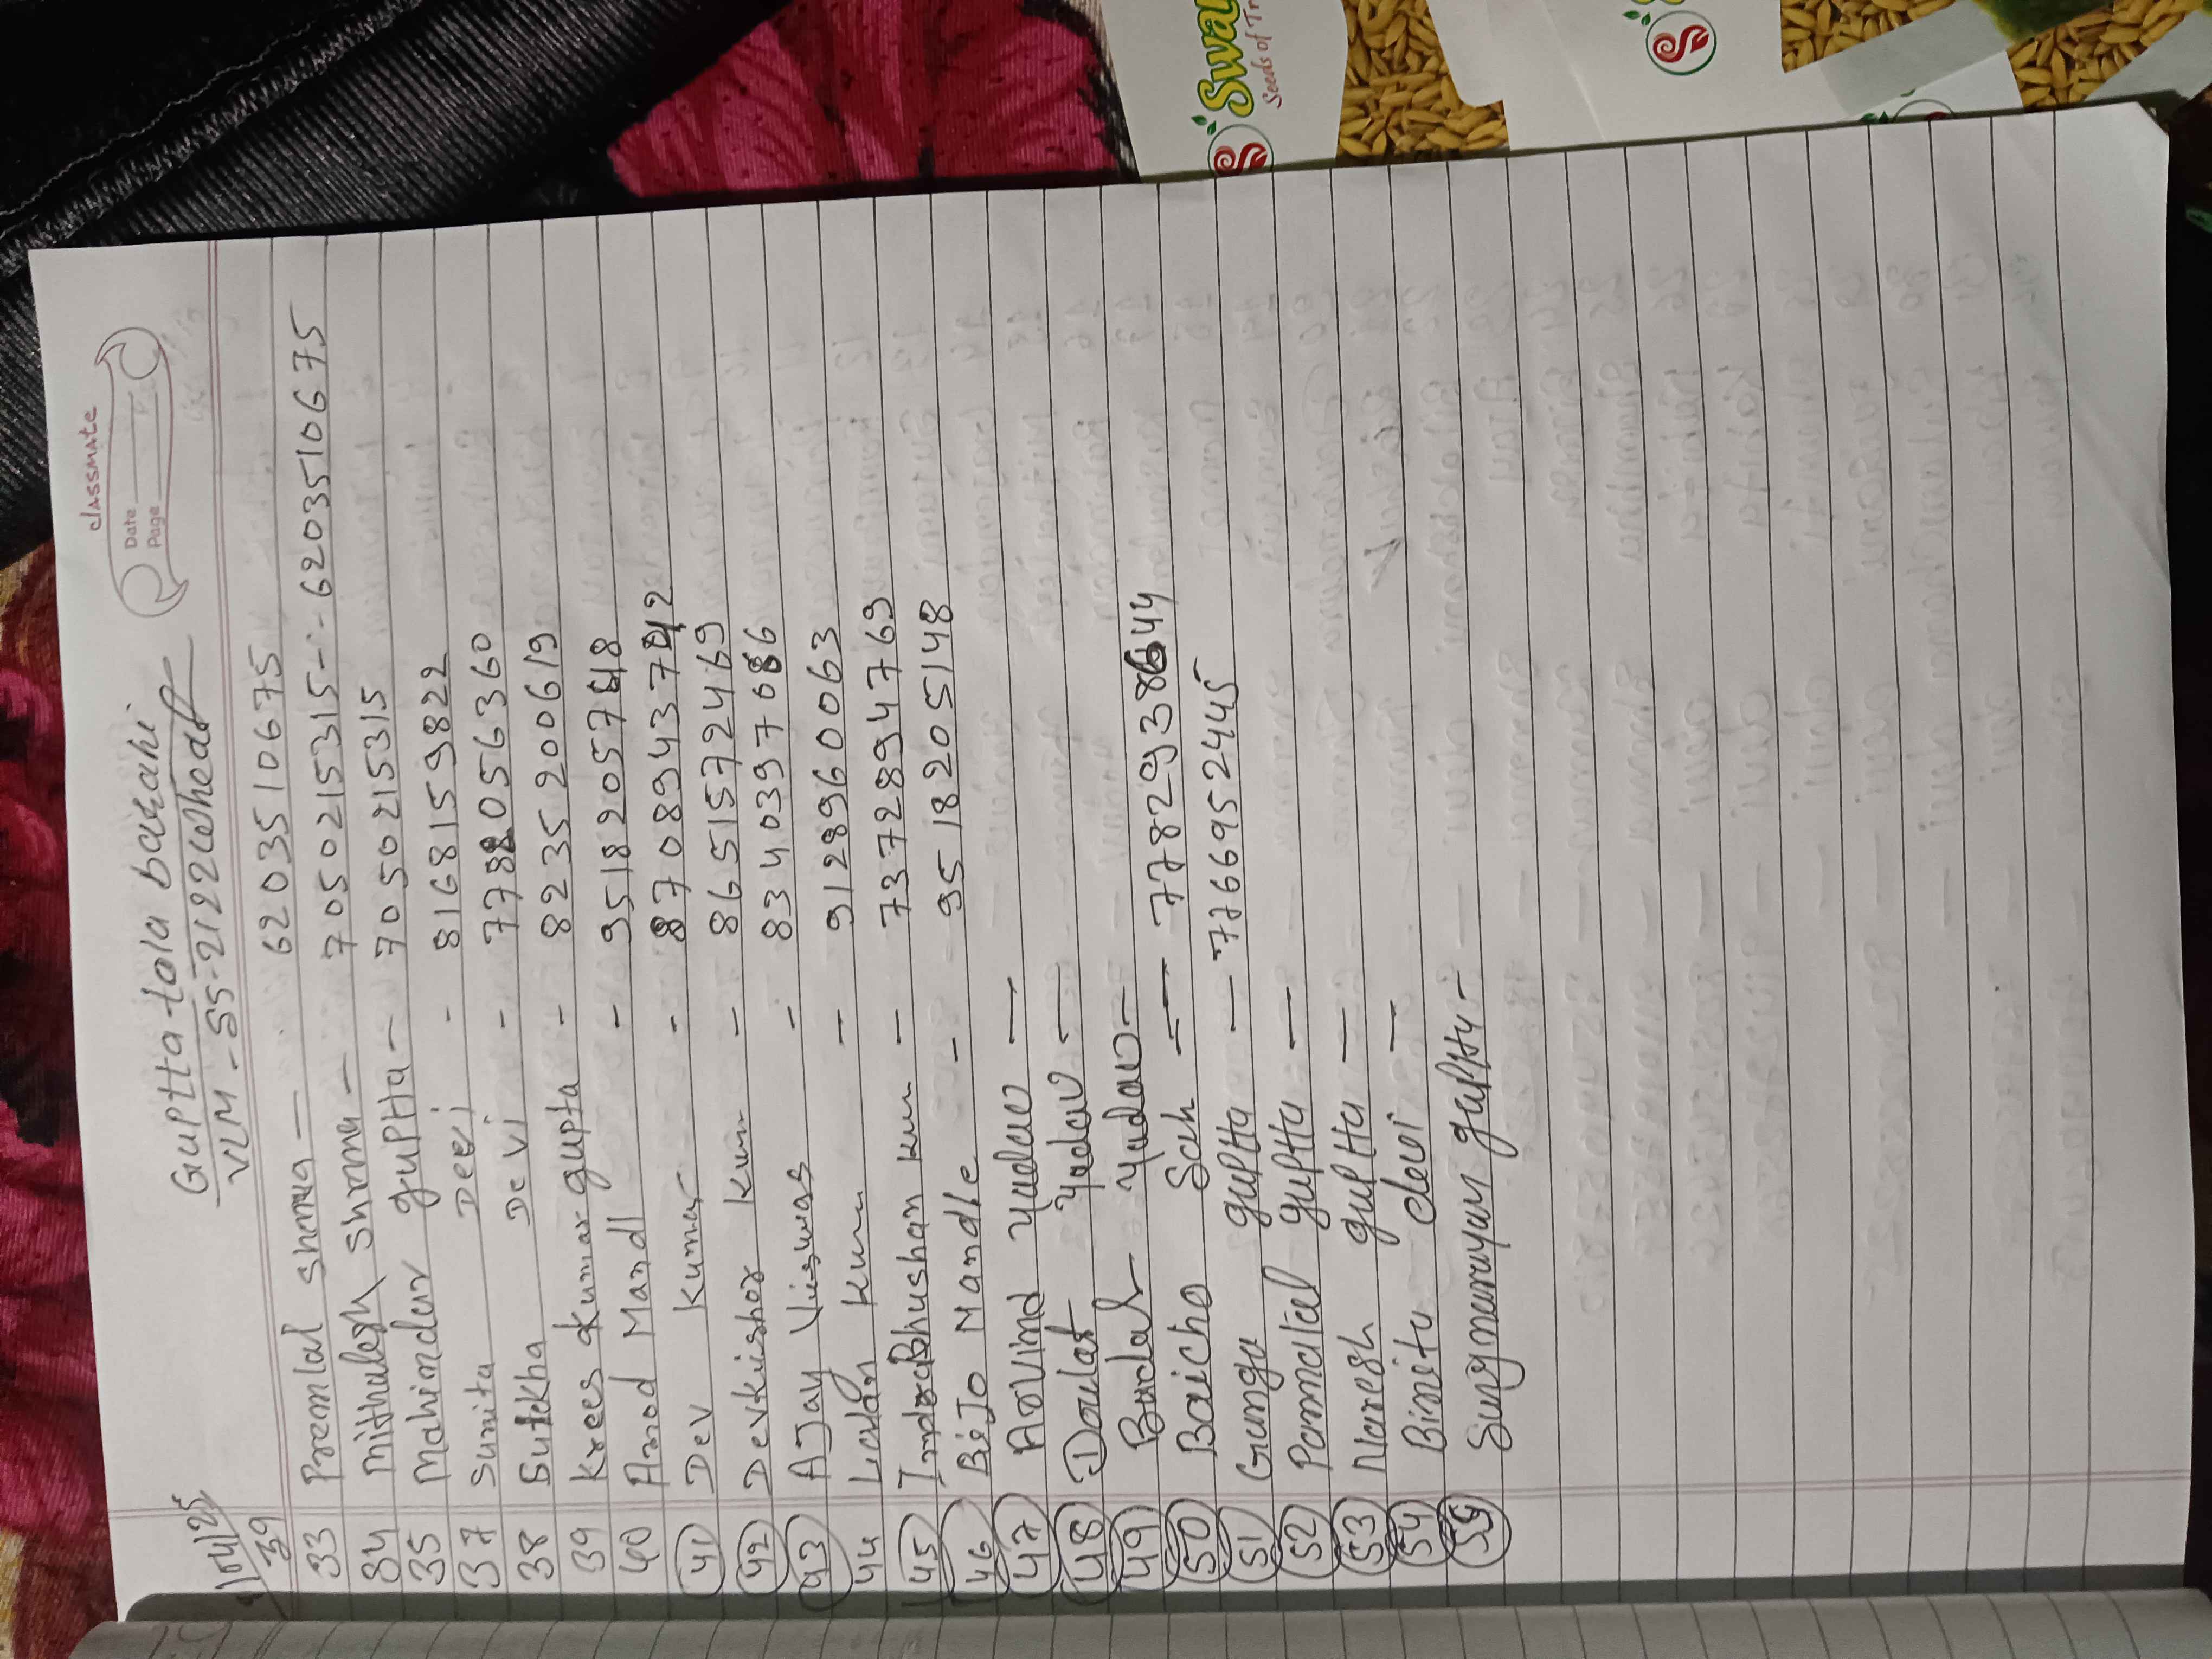 classmate
Date
Page
Guptta-tola barahi
VLM - SS-2122 Whedt
39
6203510675
33 Premlal Shrma —
34 Mithulesh Shrma — 7050215315 - - 6203510675
35 Mahindar guptta — 7050215315
37 Sunita Deei - 8168159822
38 Surekha Devi - 7788056 3360
39 Krees Kumar gupta - 8235200619
40 Amod Mandl - 9518205748
41 Dev Kumar - 8708943742
42 Devkishor Kum - 8651572469
43 AJay Viswas - 8340397086
44 Ladan Kum - 9128960063
45 IndraBhushan Kum - 7372894769
46 BiJo Mandle - 9518205148
47 Arvind yadav —
48 Doulat yadav —
49 Badal - yadav —
50 Baicho Sah — 7782938644
51 Gunga guptta — 7766952445
52 Pannalal guptta —
53 Naresh guptta —
54 Binitu devi —
55 Surynarayan guptta -
Swa
Seeds of Tr